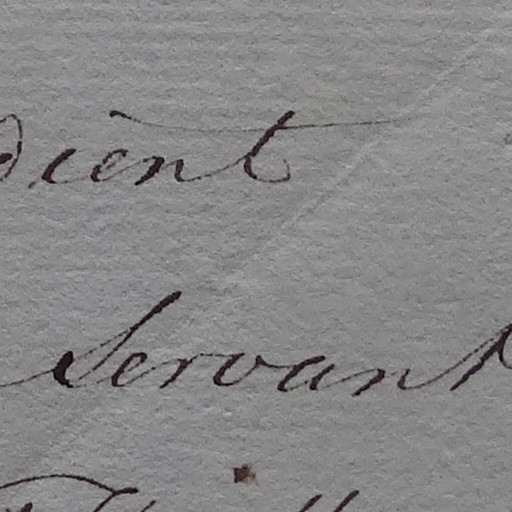 dient
Servant